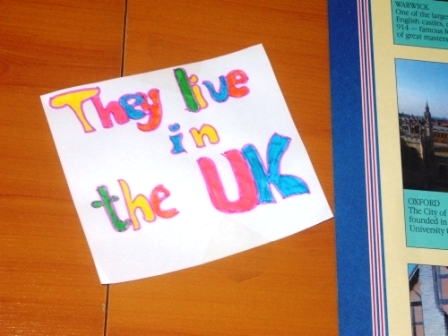 They live
in
the UK
WARWICK
One of the large
English castles,
914 — famous
of great master
OXFORD
The City of
founded in
University